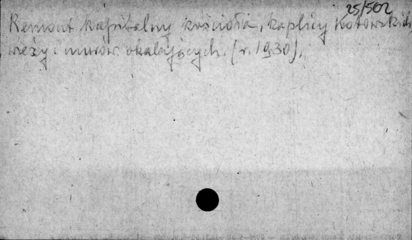 25/502
Remont kapitalny kościoła, kaplicy Kotowskich
wieży i murów okalających. (r. 1930).